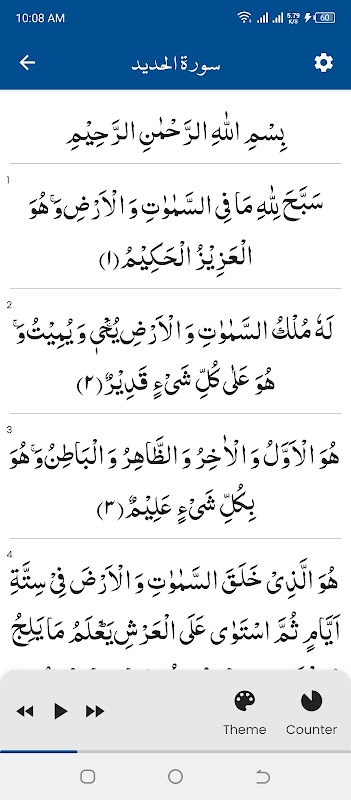 10:08 AM 5.79 K/S 60
سورة الحديد
بِسْمِ اللهِ الرَّحْمٰنِ الرَّحِيْمِ
1
سَبَّحَ لِلّٰهِ مَا فِى السَّمٰوٰتِ وَ الْاَرْضِ ۚ وَ هُوَ
الْعَزِيْزُ الْحَكِيْمُ (۱)
2
لَهٗ مُلْكُ السَّمٰوٰتِ وَ الْاَرْضِ ۚ یُحْیٖ وَ یُمِیْتُ ۚ وَ
هُوَ عَلٰى كُلِّ شَیْءٍ قَدِیْرٌ (۲)
3
هُوَ الْاَوَّلُ وَ الْاٰخِرُ وَ الظَّاهِرُ وَ الْبَاطِنُ ۚ وَ هُوَ
بِكُلِّ شَیْءٍ عَلِیْمٌ (۳)
4
هُوَ الَّذِیْ خَلَقَ السَّمٰوٰتِ وَ الْاَرْضَ فِیْ سِتَّةِ
اَیَّامٍ ثُمَّ اسْتَوٰى عَلَى الْعَرْشِ ؕ یَعْلَمُ مَا یَلِجُ
Theme Counter